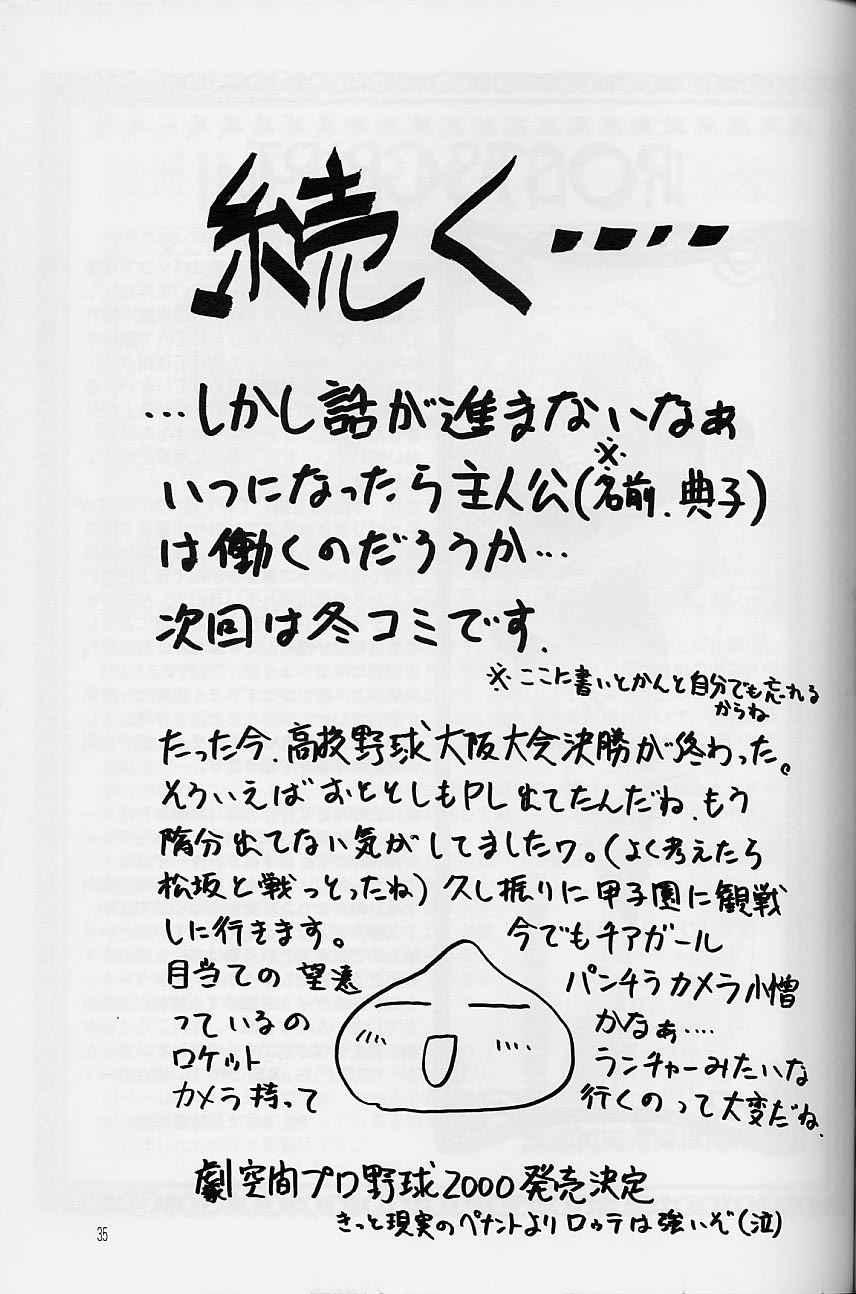 続く‥‥
…しかし話が進まないなぁ
いつになったら主人公(※名前.典子)
は働くのだろうか…
次回は冬コミです.
※ここに書いとかんと自分でも忘れる
からね
たった今、高校野球大阪大会決勝が終わった。
そういえばおととしもPL出てたんだね、もう
随分出てない気がしてましたワ。(よく考えたら
松坂と戦っとったね)久し振りに甲子園に観戦
しに行きます。 今でもチアガール
目当ての望遠 パンチラカメラ小僧
っているの かなぁ‥‥
ロケット ランチャーみたいな
カメラ持って 行くのって大変だね.
劇空間プロ野球2000発売決定
きっと現実のペナントよりロッテは強いぞ(泣)
35